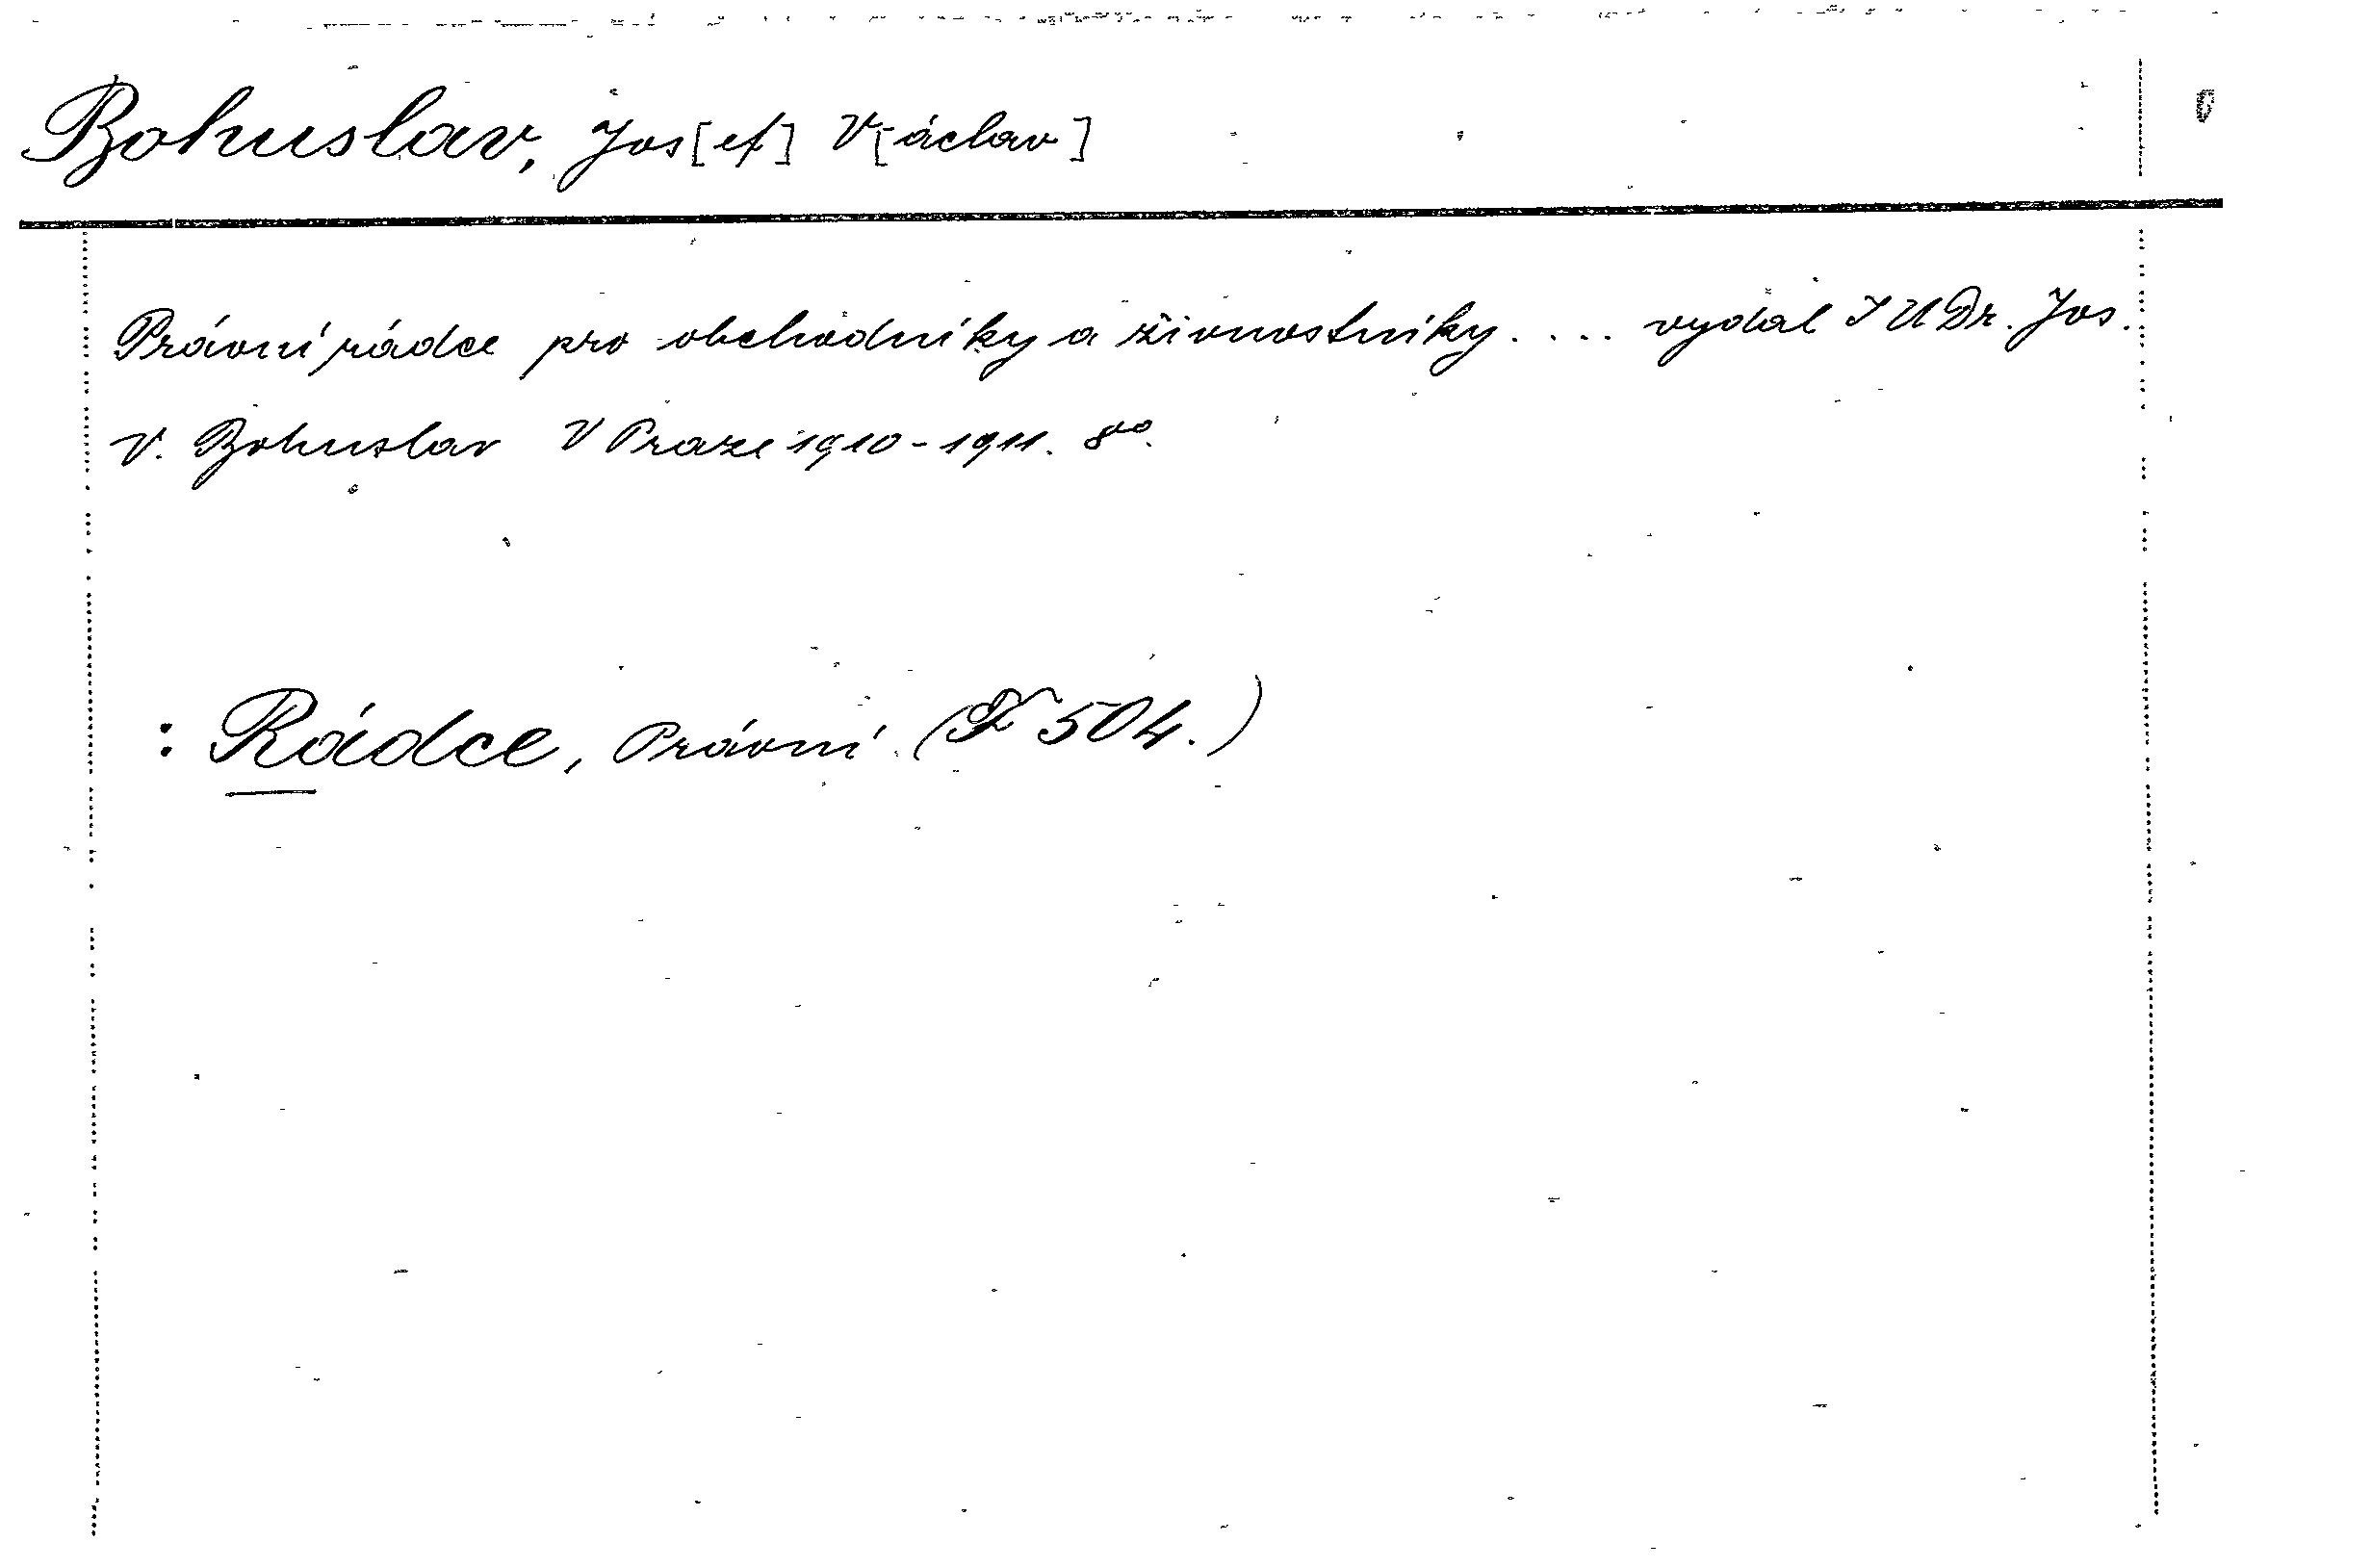 Bohuslav, Jos[ef] V[áclav]
Právní rádce pro obchodníky a živnostníky.... vydal JUDr. Jos.
V. Bohuslav V Praze 1910-1911. 8vo.
: Rádce, Právní (F 504.)